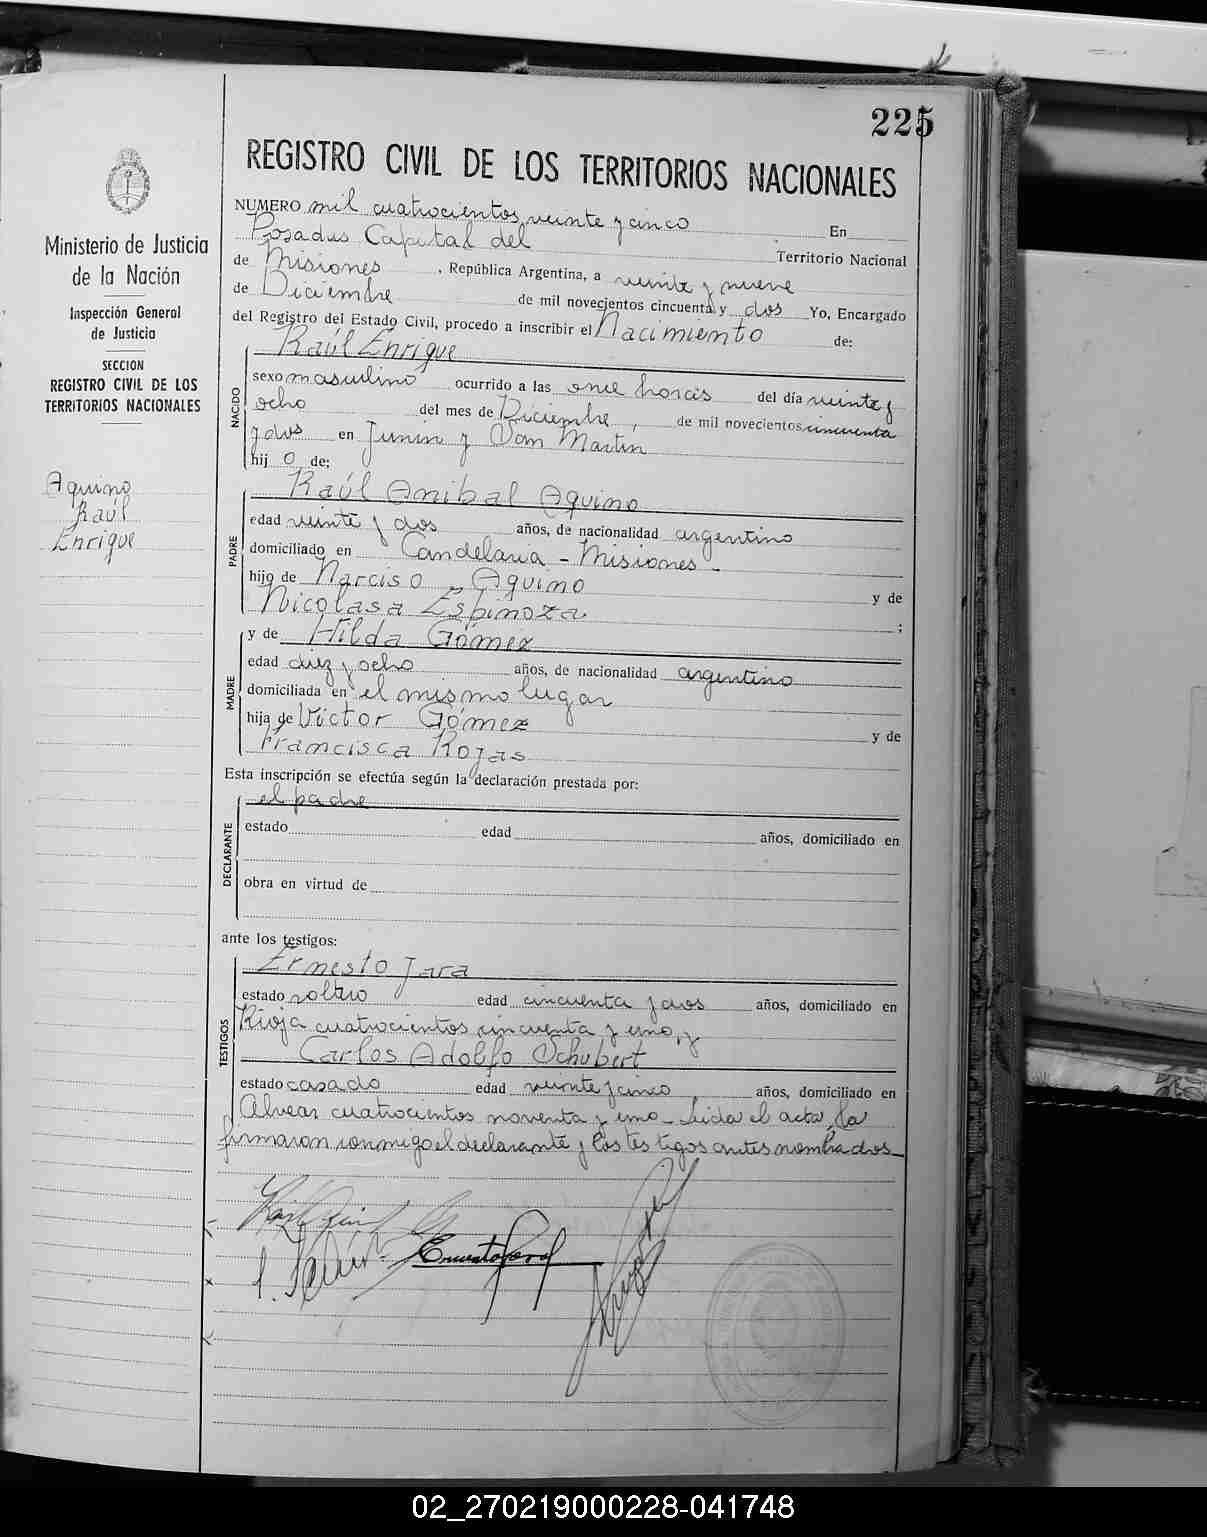 225
REGISTRO CIVIL DE LOS TERRITORIOS NACIONALES
Ministerio de Justicia
de la Nación
Inspección General
de Justicia
SECCION
REGISTRO CIVIL DE LOS
TERRITORIOS NACIONALES
Aquino
Raúl
Enrique
NUMERO mil cuatrocientos veinte y cinco En
Posadas Capital del Territorio Nacional
de Misiones, República Argentina, a veinte y nueve
de Diciembre de mil novecientos cincuenta y dos Yo, Encargado
del Registro del Estado Civil, procedo a inscribir el Nacimiento de:
Raúl Enrique
NACIDO
sexo masculino ocurrido a las once horas del día veinte y
ocho del mes de Diciembre, de mil novecientos cincuenta
y dos en Junin y San Martin
hij o de:
Raúl Anibal Aquino
PADRE
edad veinte y dos años, de nacionalidad argentino
domiciliado en Candelaria - Misiones -
hijo de Narciso Aquino y de
Nicolasa Espinoza ;
y de Hilda Gómez
MADRE
edad diez y ocho años, de nacionalidad argentino
domiciliada en el mismo lugar
hija de Victor Gómez y de
Francisca Rojas
Esta inscripción se efectúa según la declaración prestada por:
el padre
DECLARANTE
estado edad años, domiciliado en
obra en virtud de
ante los testigos:
Ernesto Jara
TESTIGOS
estado soltero edad cincuenta y dos años, domiciliado en
Rioja cuatrocientos cincuenta y uno, y
Carlos Adolfo Schubert
estado casado edad veinte y cinco años, domiciliado en
Alvear cuatrocientos noventa y uno - Leida el acta, la
firmaron conmigo el declarante y los testigos antes nombrados -
Ernesto Jara
02_270219000228-041748